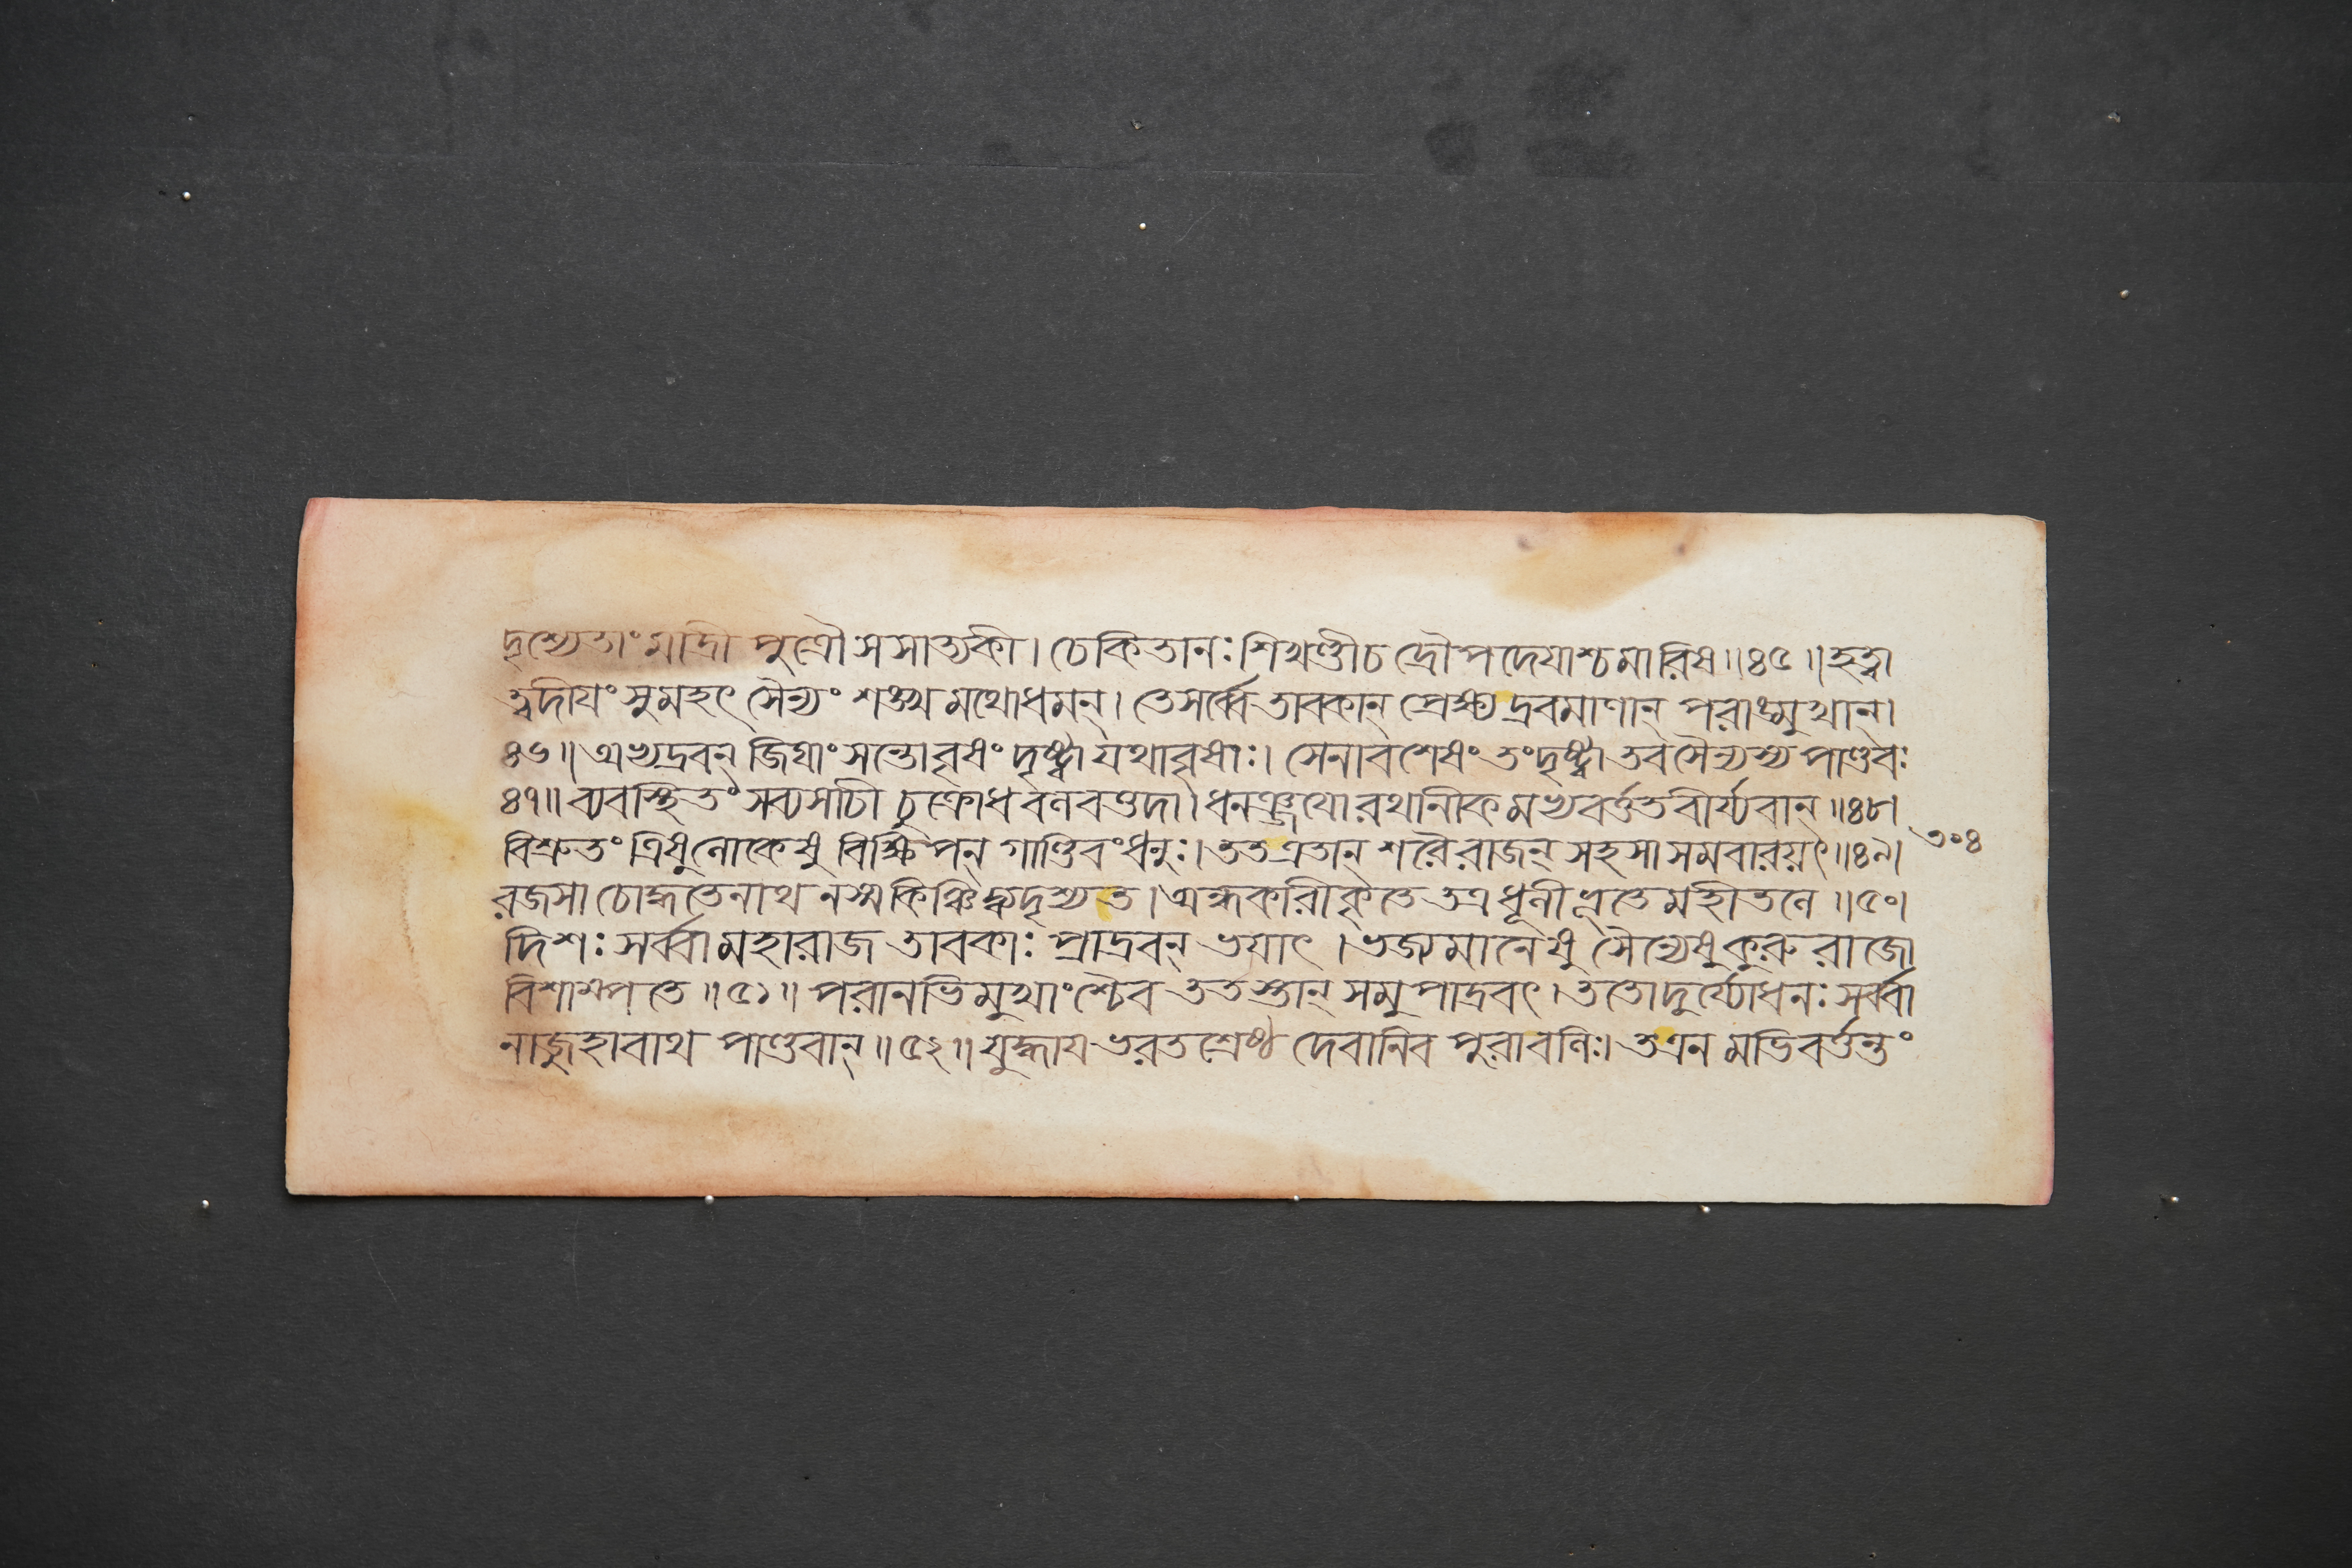 দৃশ্যেতাং মাদ্রী পুত্রৌ সসাত্যকী। চেকিতানঃ শিখণ্ডীচ দ্রৌপদেযাশ্চমারিষ॥৪৫॥হত্বা
ত্বদীযং সুমহৎ সৈন্যং শঙ্খমথোধমন্। তেসর্ব্বে তাবকান্ প্রেক্ষ্য দ্রবমাণান্ পরাঙ্মুখান্।
৪৬॥অভ্যদ্রবন্ জিঘাংসন্তোবৃষং দৃষ্ট্বা যথাবৃষাঃ। সেনাবশেষং তংদৃষ্ট্বা তবসৈন্যস্য পাণ্ডবঃ
৪৭॥ব্যবস্থিতং সব্যসাচী চুক্রোধ বলবত্তদা।ধনঞ্জযোরথানীকমভ্যবর্ত্তত বীর্য্যবান্॥৪৮।
বিশ্রুতং ত্রিষুলোকেষু বিক্ষিপন্ গাণ্ডিবং ধনুঃ।তত এতান্ শরৈরাজন্ সহসা সমবারয়ৎ॥৪৯। ৩০৪
রজসা চোদ্ধতেনাথ নস্মকিঞ্চিদ্ব্যদৃশ্যত।অন্ধকারীকৃতে তত্র ধূলীপ্লুতে মহীতলে॥৫০।
দিশঃ সর্ব্বা মহারাজ তাবকাঃ প্রাদ্রবন্ ভযাৎ।ভজ্যমানেষু সৈন্যেষুকুরুরাজো
বিশাম্পতে॥৫১॥পরানভিমুখাংশ্চৈব ততস্তান্ সমুপাদ্রবৎ।ততোদুর্য্যোধনঃ সর্ব্বা
নাজুহাবাথ পাণ্ডবান্॥৫২॥যুদ্ধায ভরতশ্রেষ্ঠ দেবানিব পুরাবলিঃ।তএনমভিবর্ত্তন্তং